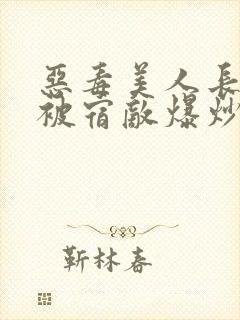 惡毒美人長
被宿敵爆炒
靳林春